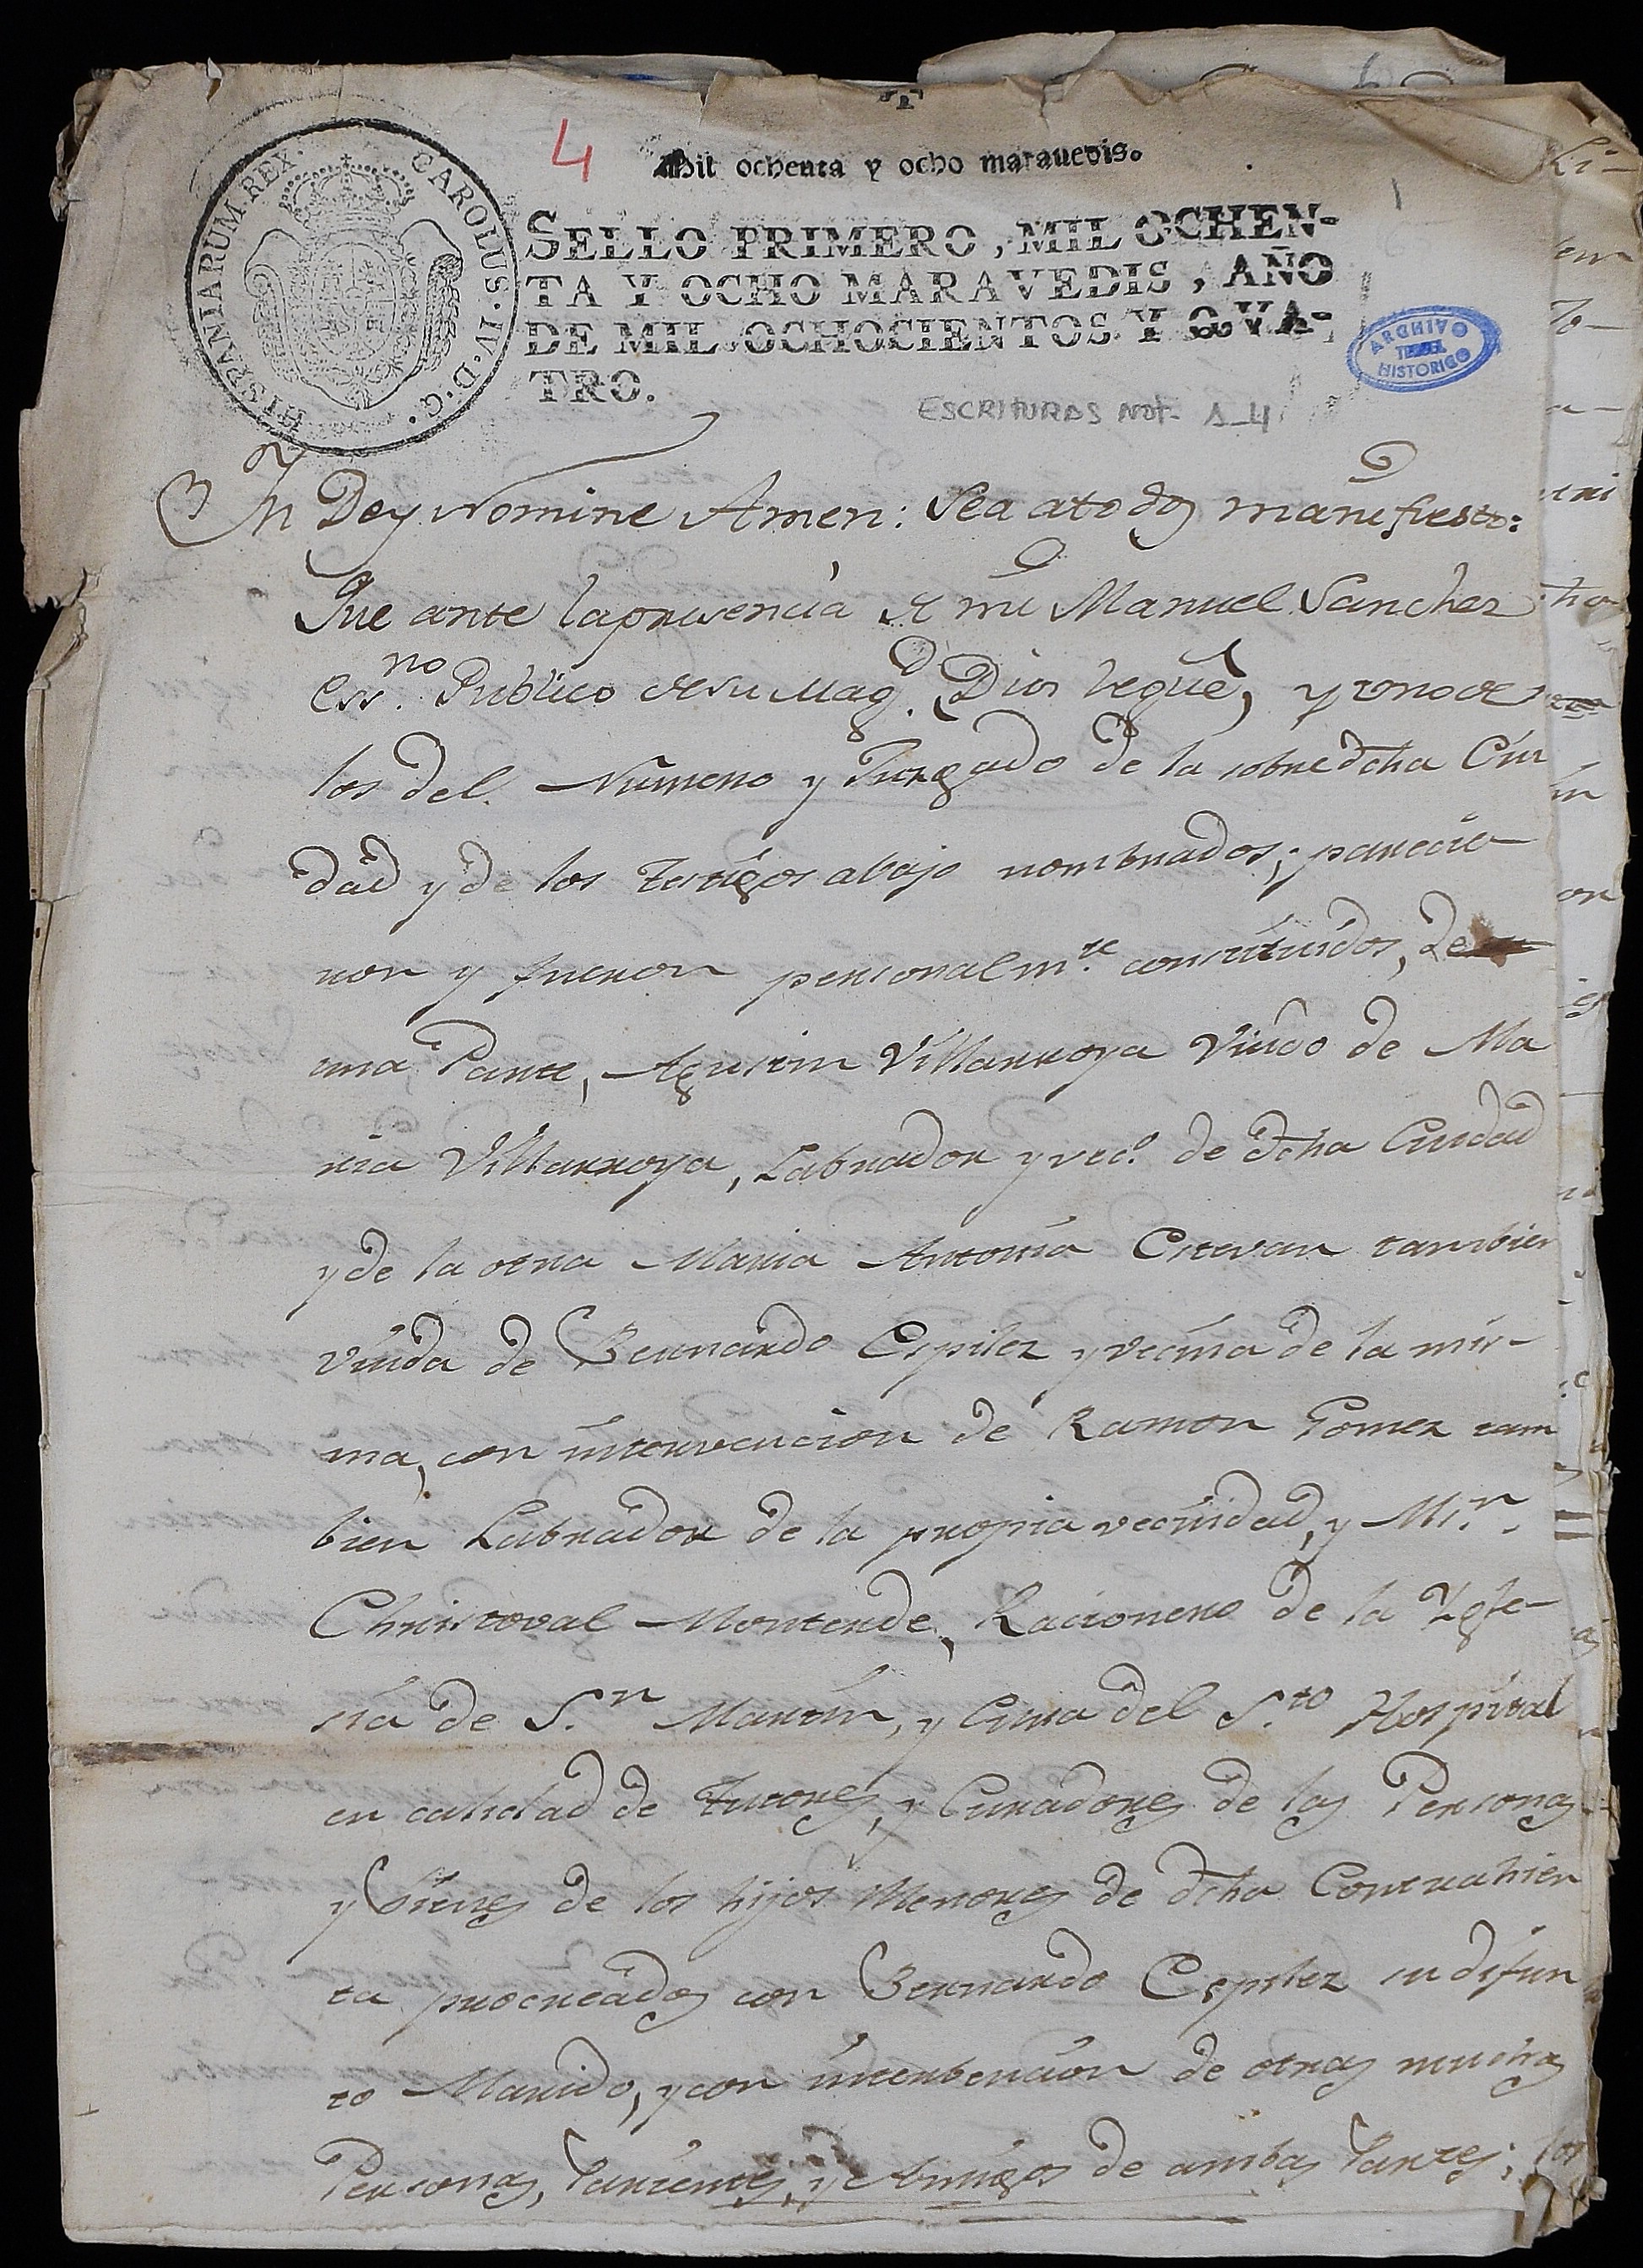 4
Mil ochenta y ocho maravedis.
HISPANIARUM REX CAROLUS IV D G
SELLO PRIMERO, MIL OCHEN-
TA Y OCHO MARAVEDIS, AÑO
DE MIL OCHOCIENTOS Y QVA-
TRO.
ARCHIVO
TERUEL
HISTORICO
ESCRITURAS NOT- 1-4
In Dey Nomine Amen: Sea atodos manifiesto:
Que ante lapresencia de mi Manuel Sanchez
Ess.no Publico desu Mag.d (Dios legue) y unode
los del Numero y Juzgado de la sobredcha Ciu
dad y de los testigos abajo nombrados; parecie
ron y fueron personalm.te constituidos, de
una Parte, Agustin Villarroya Viudo de Ma
ria Villarroya, Labrador y vec.o de dcha Ciudad
y de la otra Maria Antonia Estevan tambien
viuda de Bernardo Espilez y vecina de la mis-
ma, con intervencion de Ramon Gomez tam
bien Labrador de la propia vecindad, y M.n
Christoval Monterde, Racionero de la Ygle-
sia de S.n Martin, y Cura del S.to Hospital
en calidad de Tutores, y Curadores de las Personas
y Bienes de los hijos Menores de dcha Contrahien
ta procreados con Bernardo Espilez su difun
to Marido, y con intenbencion de otras muchas
Personas, Parientes, y Amigos de ambas Partes; los